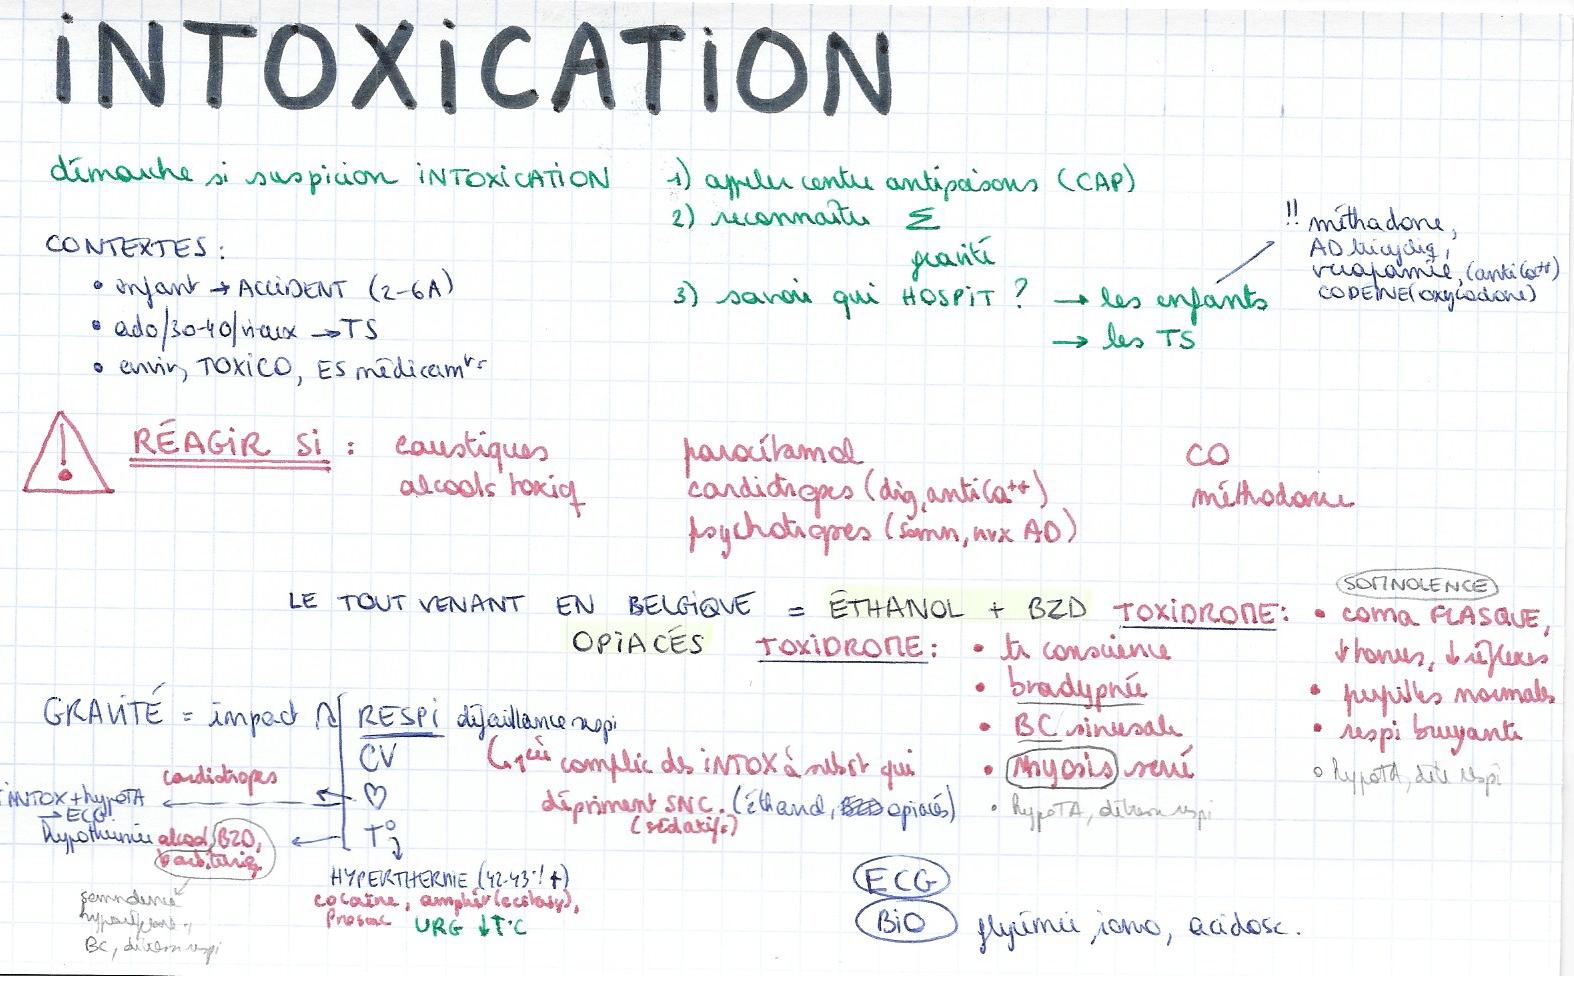 iNTOXiCATiON
démarche si suspicion iNTOXiCATiON
1) appeler centre antipoisons (CAP)
2) reconnaître Σ
gravité
3) savoir qui HOSPiT ? → les enfants
→ les TS
!! méthadone,
AD tricycliq,
(antiCa++)
CODEINE (oxycodone)
CONTEXTES :
• enfant → ACCIDENT (2-6A)
• ado/30-40/vieux → TS
• envir, TOXICO, ES médicamts
! RÉAGiR Si :
caustiques
alcools toxiq
paracétamol
cardiotropes (dig, antiCa++)
psychotropes (somn, nvx AD)
CO
méthadone
LE TOUT VENANT EN BELGiQUE = ÉTHANOL + BZD TOXiDROME :
SOMNOLENCE
• coma FLASQUE,
↓ tonus, ↓ réflexes
• pupilles normales
• respi bruyante
○ hypoTA, dete respi
OPiACÉS TOXiDROME :
• tr conscience
• bradypnée
• BC sinusale
• Myosis serré
• hypoTA, détresse respi
GRAVITÉ = impact
RESPi défaillance respi
CV
♡
T°
complic des iNTOX à subst qui
dépriment SNC. (éthanol, BZD opiacés)
(sédatifs)
cardiotropes
iNTOX + hypoTA
→ ECG
hypothermie alcool, BZD,
barbituriq
somnolence
BC, détresse respi
HYPERTHERMIE (42-43°! †)
cocaïne, amphét (ecstasy),
Prozac URG ↓T°C
ECG
BiO glycémie, iono, acidose.